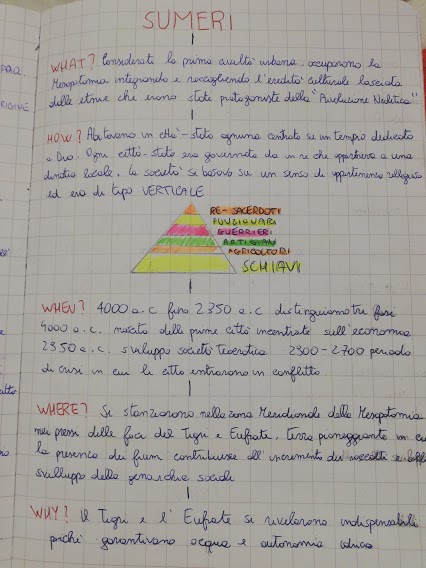 SUMERI
WHAT? Considerati la prima civiltà urbana, occuparono la
Mesopotamia integrando e raccogliendo l'eredità culturale lasciata
delle etnie che erano state protagoniste della "Rivoluzione Neolitica"
HOW? Abitavano in città-stato ognuna centrata su un tempio dedicato
a Dio. Ogni città-stato era governata da un re che apparteneva a una
dinastia locale, la società si basava su un senso di appartenenza religiosa
ed era di tipo VERTICALE
RE-SACERDOTI
FUNZIONARI
GUERRIERI
ARTIGIANI
AGRICOLTORI
SCHIAVI
WHEN? 4000 a.C fino 2350 a.C distinguiamo tre fasi
4000 a.C. nascita delle prime città incentrate sull'economia
2350 a.C. sviluppo società Teocratica 2900-2700 periodo
di crisi in cui le città entrarono in conflitto
WHERE? Si stanziarono nella zona Meridionale della Mesopotamia
nei pressi delle foci del Tigri e Eufrate, Terra pianeggiante in cui
la presenza dei fiumi contribuisce all'incremento dei raccolti e
sviluppo delle gerarchie sociali
WHY? Il Tigri e l'Eufrate si rivelarono indispensabili
perché garantivano acqua e autonomia idrica